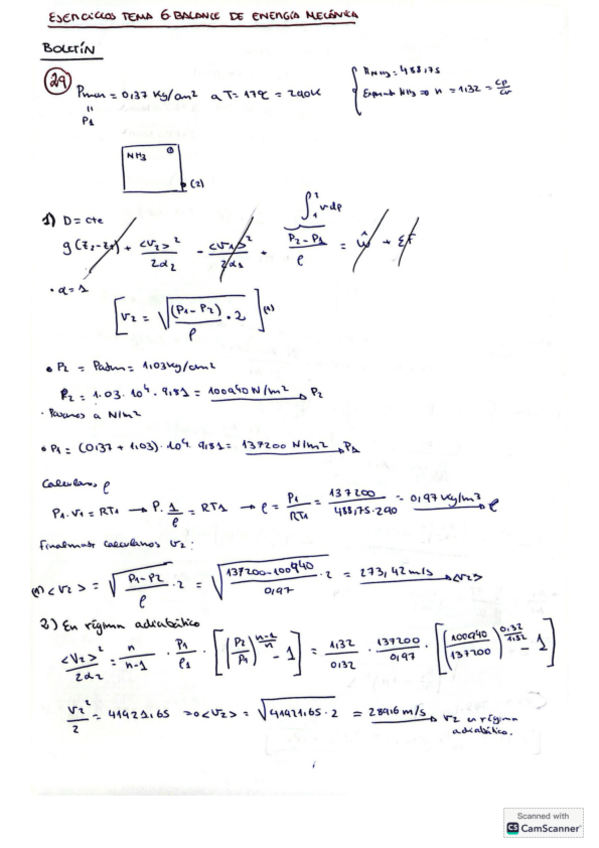 EJERCICIOS TEMA 6 BALANCE DE ENERGÍA MECÁNICA
BOLETÍN
29
Pman = 0,37 Kg/cm² a T = 17ºC = 290K
R NH3 = 488,75
NH3 => n = 1,32 = Cp/Cv
"
P1
NH3 (1)
(2)
1) D = cte
∫₁² v dp
g(z2-z1) + <v2>²/2α2 - <v1>²/2α1 + (P2-P1)/ρ = Ŵ + ΣF
· α = 1
[v2 = √((P1-P2)/ρ · 2)](*)
• P2 = Patm = 1.03 Kg/cm²
P2 = 1.03 · 10⁴ · 9,81 = 100940 N/m² → P2
· Pasamos a N/m²
• P1 = (0,37 + 1,03) · 10⁴ · 9,81 = 137200 N/m² → P1
Calculamos ρ
P1 · V1 = RT1 → P · 1/ρ = RT1 → ρ = P1/RT1 = 137200/(488,75 · 290) = 0,97 Kg/m³ → ρ
Finalmente calculamos v2:
(*) <v2> = √((P1-P2)/ρ · 2) = √((137200-100940)/0,97 · 2) = 273,42 m/s → <v2>
2) En régimen adiabático
<v2>²/2α2 = n/(n-1) · P1/ρ1 · [(P2/P1)^((n-1)/n) - 1] = 1,32/0,32 · 137200/0,97 · [(100940/137200)^(0,32/1,32) - 1]
v2²/2 = 41921,65 => <v2> = √(41921,65 · 2) = 289,6 m/s → v2 en régimen
adiabático.
Scanned with
CS CamScanner